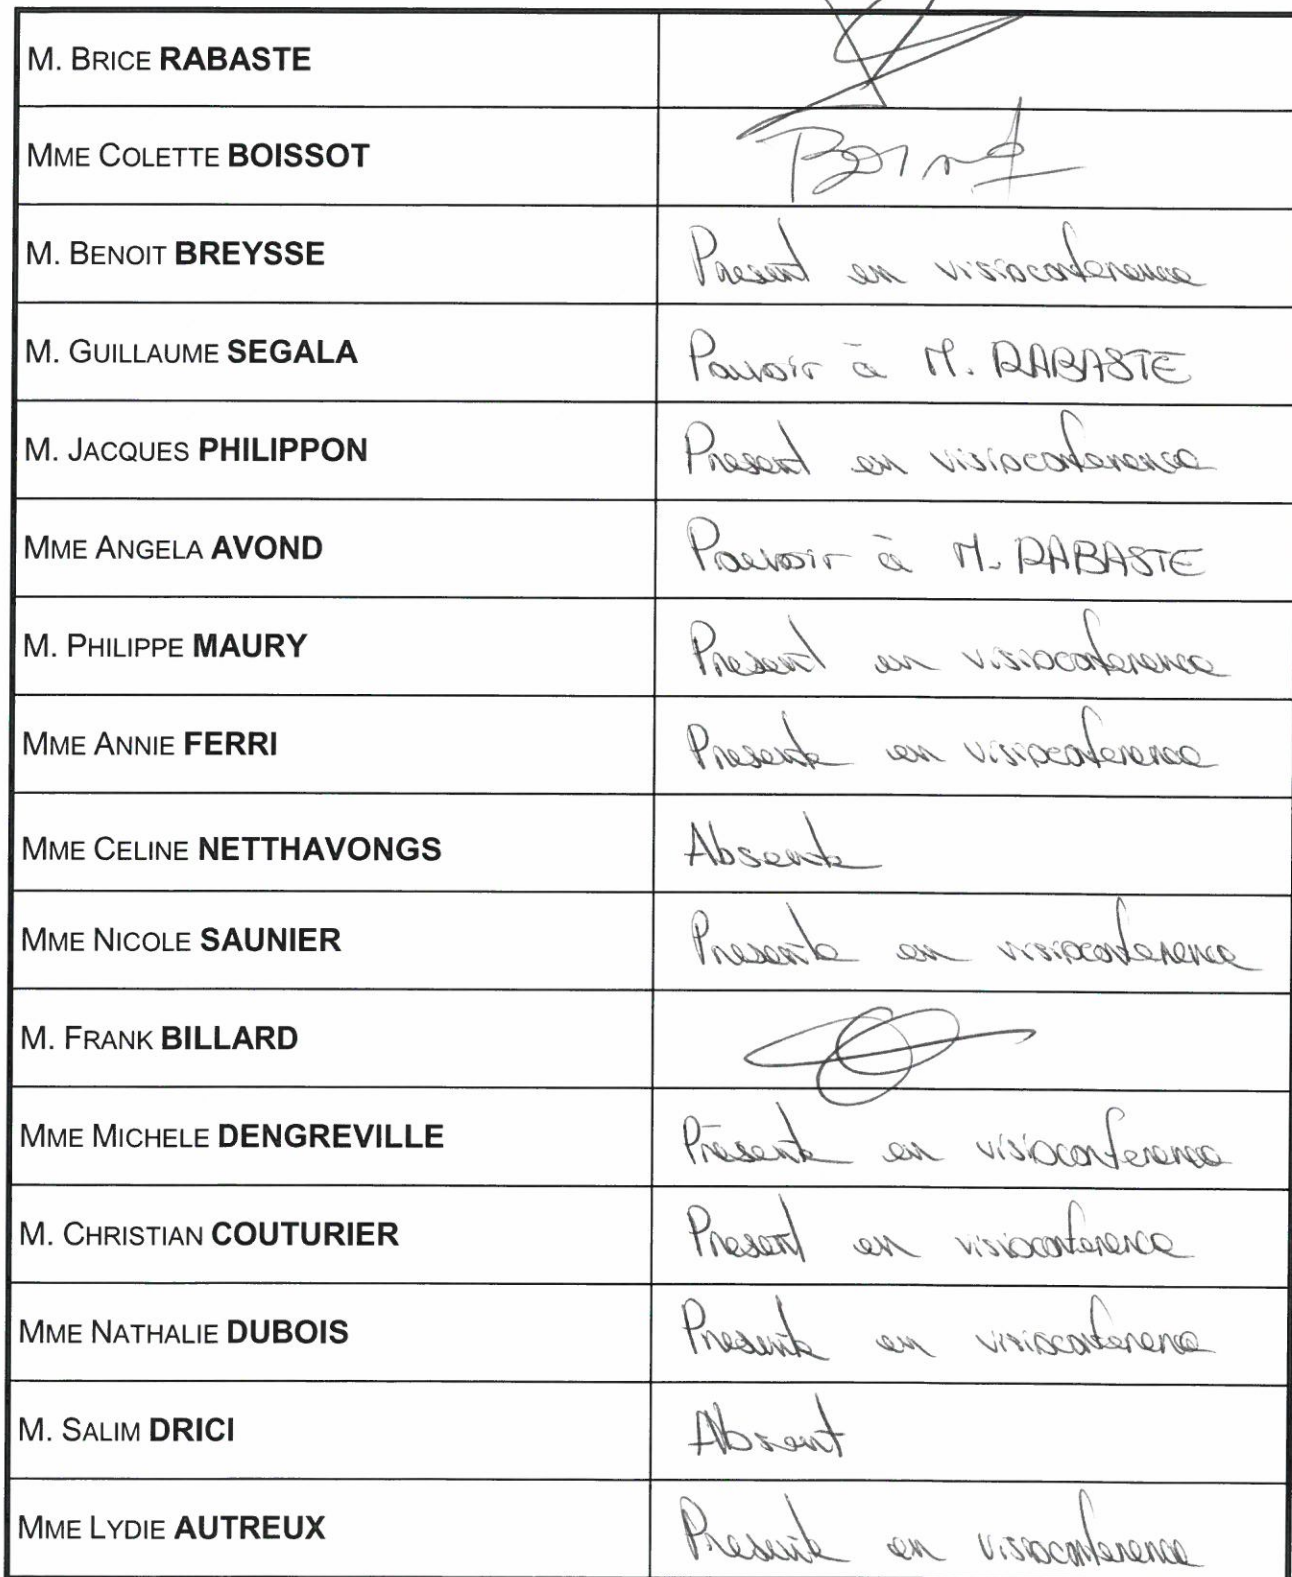 M. BRICE RABASTE
MME COLETTE BOISSOT
M. BENOIT BREYSSE Present en visioconference
M. GUILLAUME SEGALA Pouvoir à M. RABASTE
M. JACQUES PHILIPPON Present en visioconference
MME ANGELA AVOND Pouvoir à M. RABASTE
M. PHILIPPE MAURY Present en visioconference
MME ANNIE FERRI Presente en visioconference
MME CELINE NETTHAVONGS Absente
MME NICOLE SAUNIER Presente en visioconference
M. FRANK BILLARD
MME MICHELE DENGREVILLE Présente en visioconference
M. CHRISTIAN COUTURIER Present en visioconference
MME NATHALIE DUBOIS Presente en visioconference
M. SALIM DRICI Absent
MME LYDIE AUTREUX Presente en visioconference